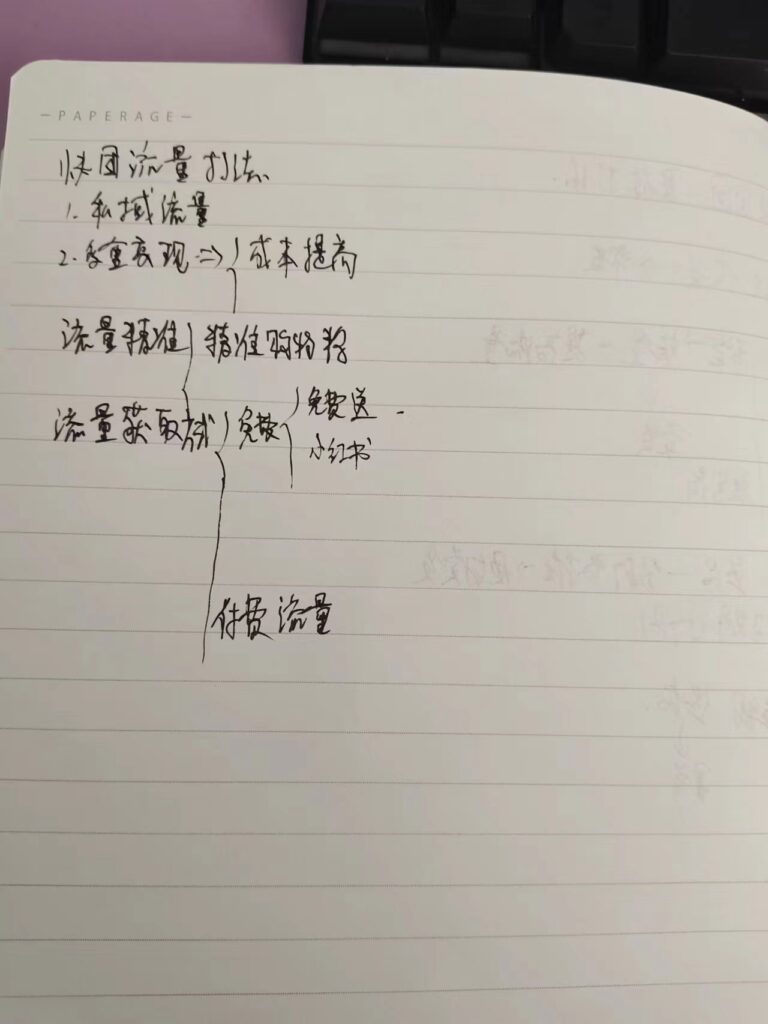 PAPERAGE
快团流量打法
1. 私域流量
2. 表现 => 成本提高
流量精准 精准购物
流量获取 免费 免费送
小红书
付费流量